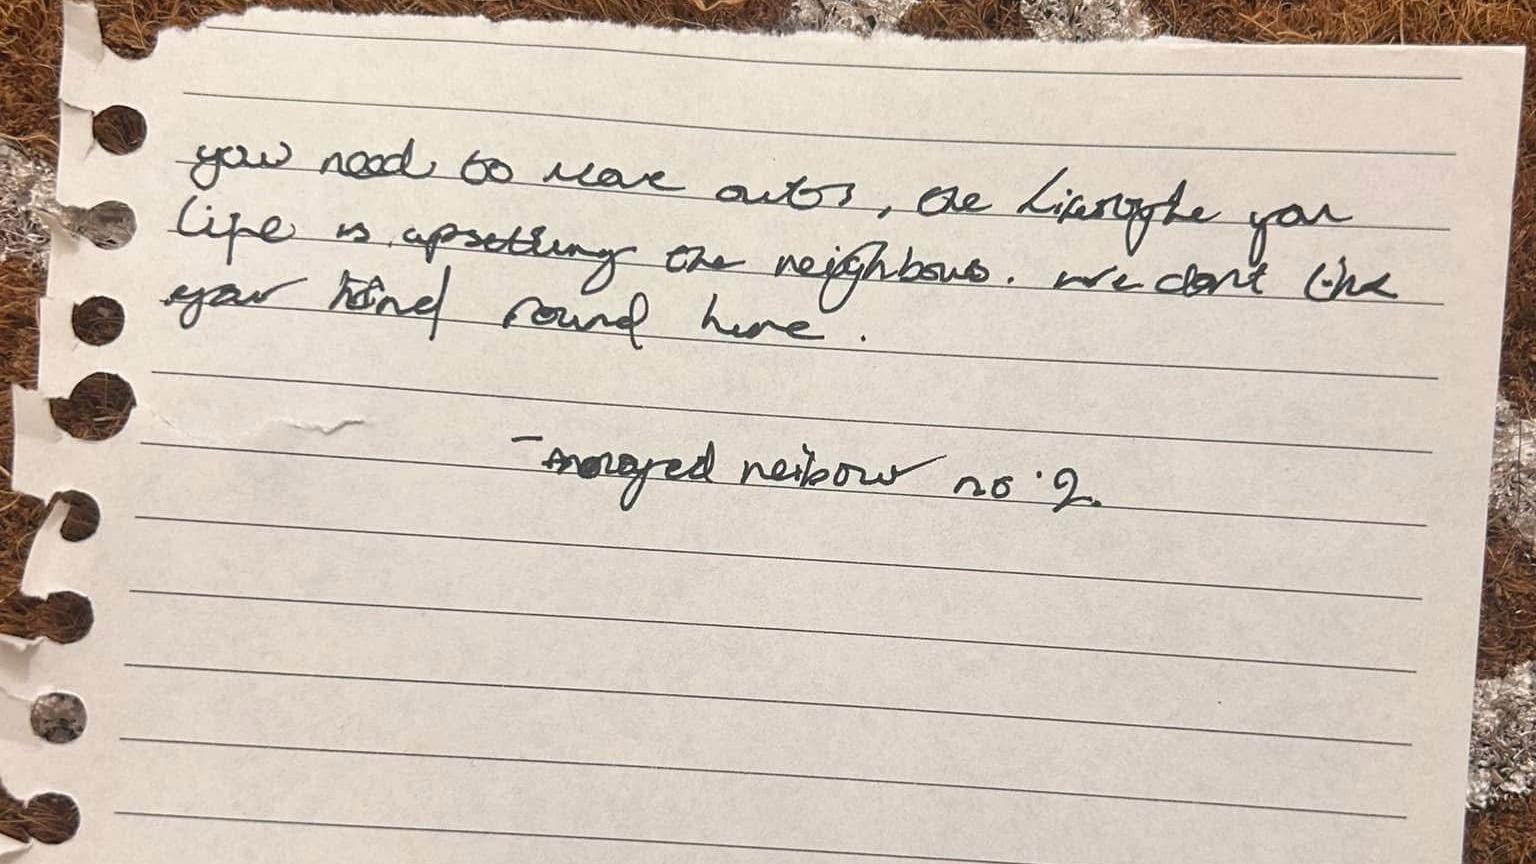 you need to move out, the lifestyle you
life is upsetting the neighbous. we dont like
your kind round here.
- annoyed neibour no 2.